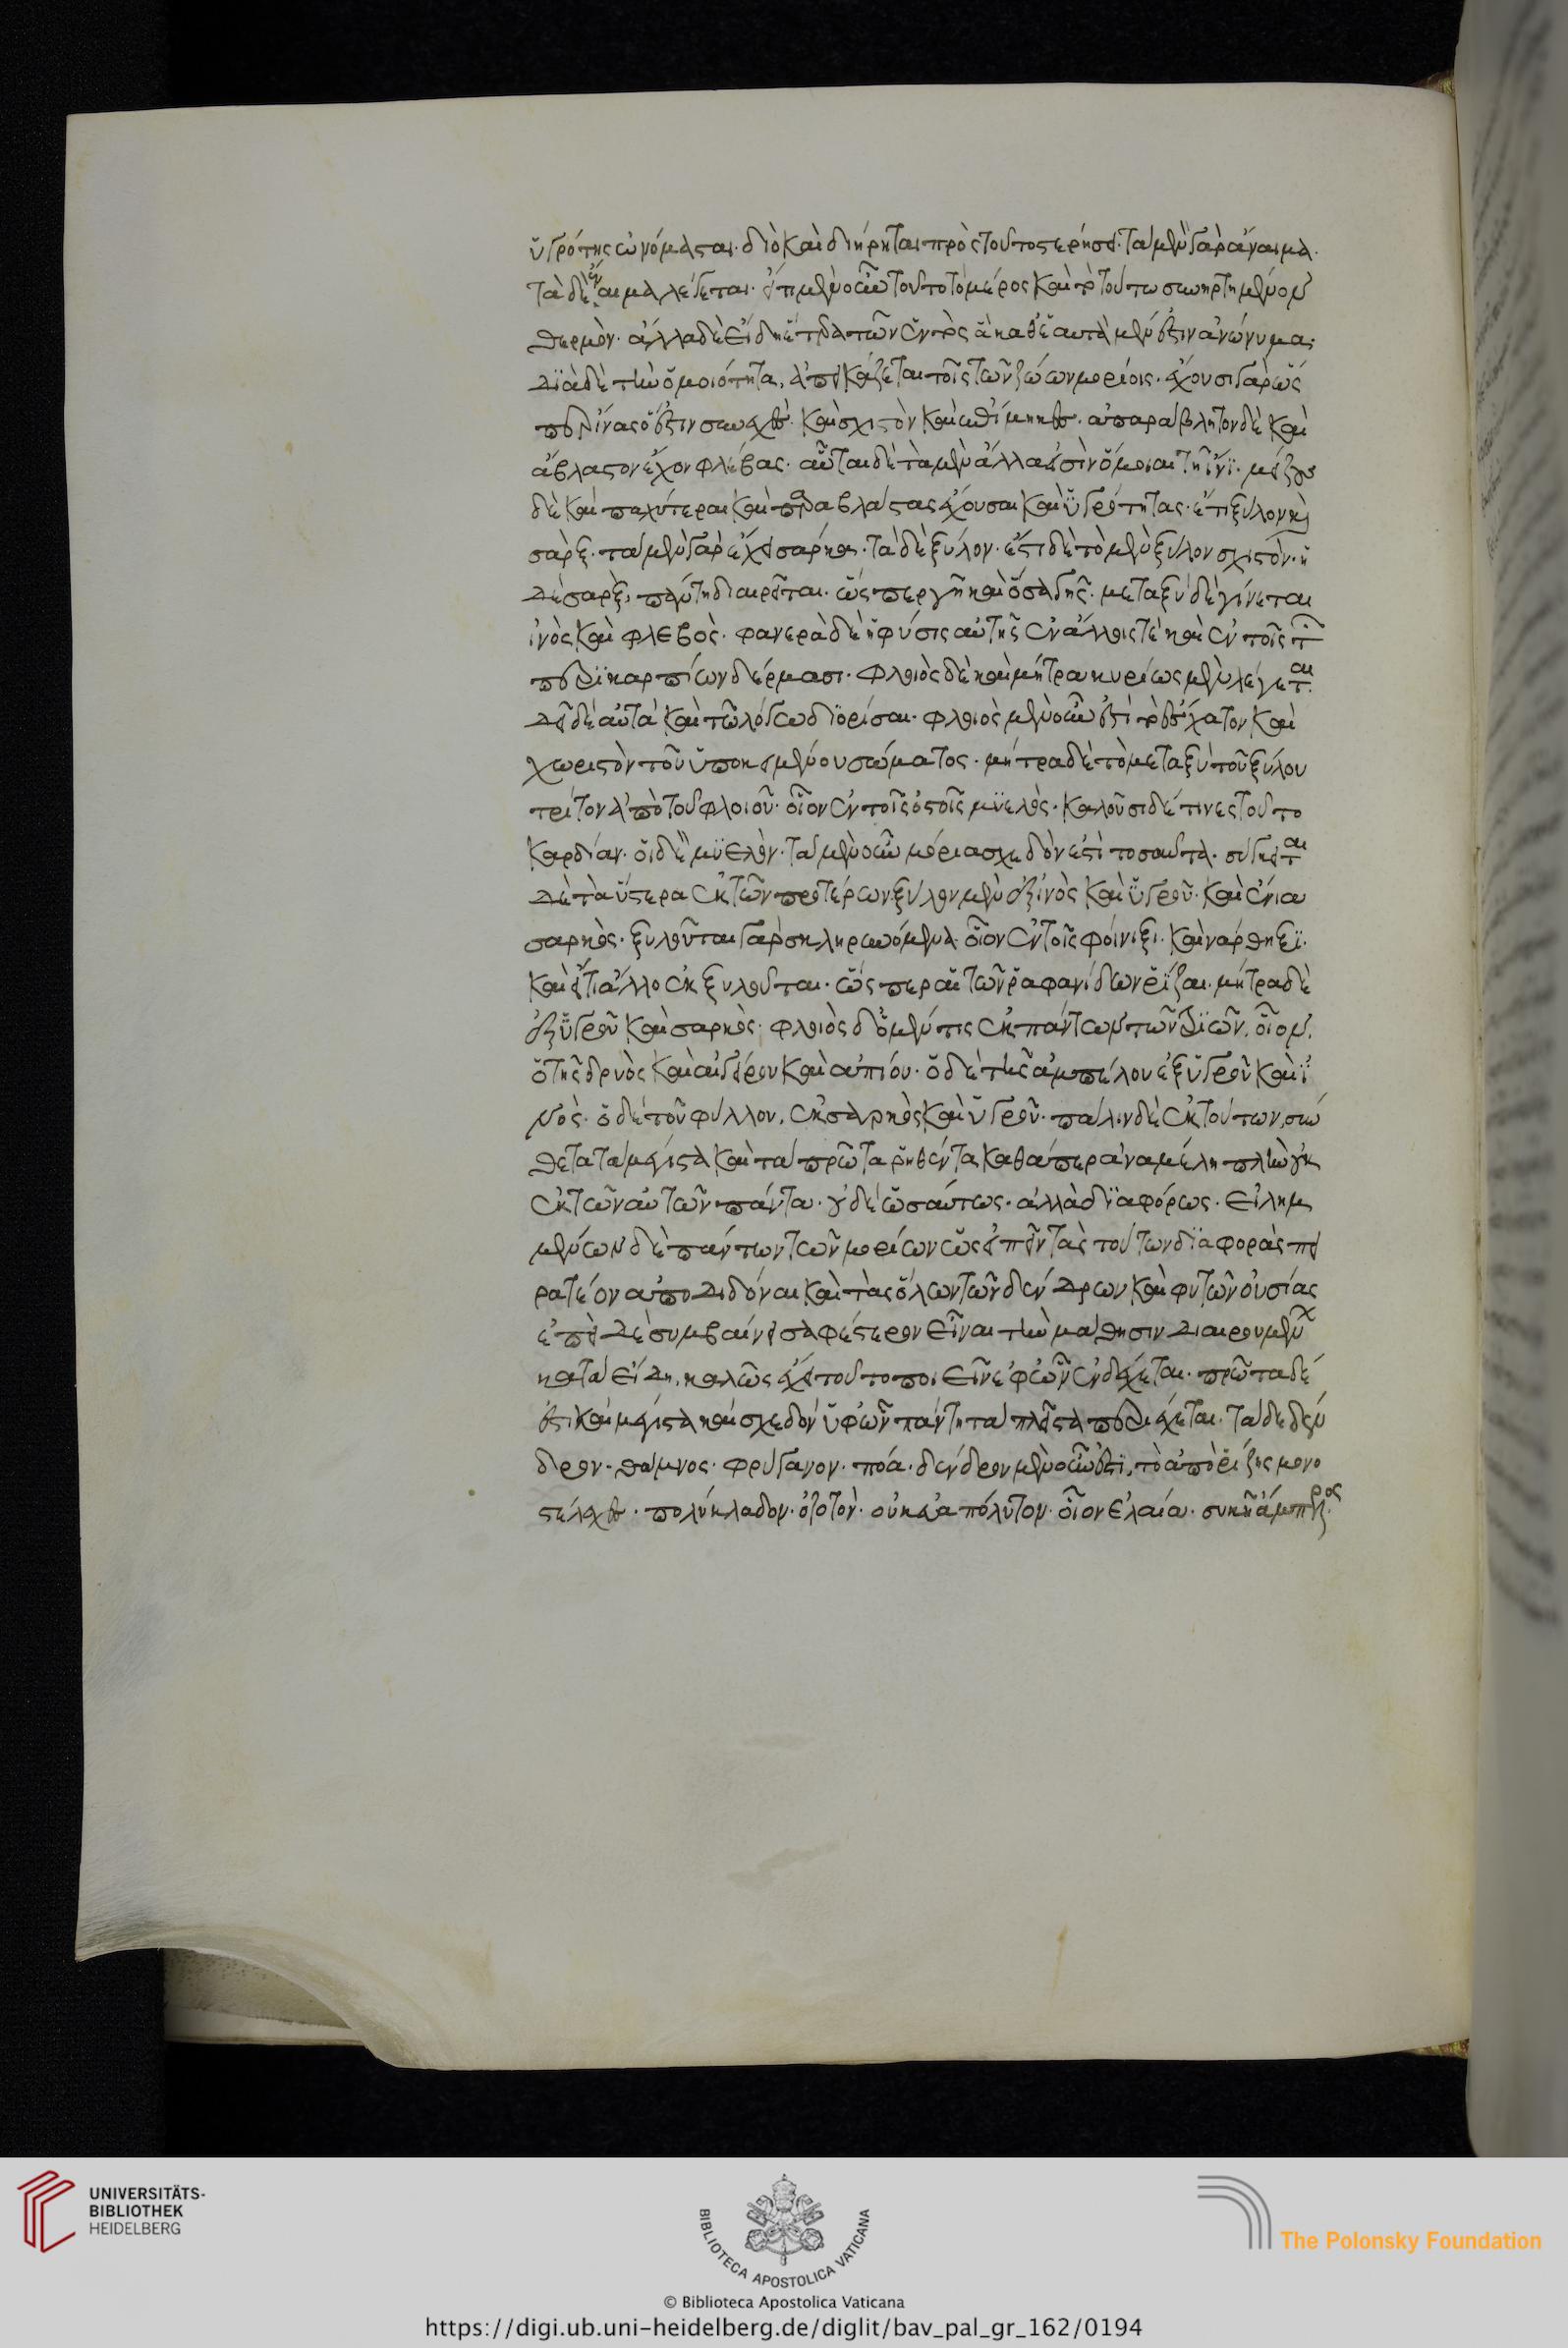 ὑγρότης ὠνόμασται· διὸ καὶ διήρηται πρὸς τοῦτο στερήσει· τὰ μὲν γὰρ ἄναιμα·
τὰ δὲ ἔναιμα λέγεται· ἔτι μὲν οὖν τοῦτο τὸ μέρος καὶ τὸ τούτω συνηρτημένον
θερμὸν· ἄλλα δὲ εἴδη ἕτερα τῶν ἐντὸς ἃ καθ' ἑαυτὰ μέν ἐστιν ἀνώνυμα·
διὰ δὲ τὴν ὁμοιότητα, ἀπεικάζεται τοῖς τῶν ζώων μορίοις· ἔχουσι γὰρ ὥς
περ ἶνας ὅ ἐστιν συνεχὲς· καὶ σχιστὸν καὶ ἐπίμηκες· ἀπαράβλητον δὲ καὶ
ἄβλαστον ἔχον φλέβας· αὗται δὲ τὰ μὲν ἄλλα εἰσὶν ὅμοιαι τῆ ἰνί· μείζους
δὲ καὶ παχύτεραι καὶ παραβλάστας ἔχουσαι καὶ ὑγρότητας· ἔτι ξύλον καὶ
σὰρξ· τὰ μὲν γὰρ ἔχει σάρκα· τὰ δὲ ξύλον· ἔστι δὲ τὸ μὲν ξύλον σχιστὸν· ἡ
δὲ σὰρξ, πάντη διαιρεῖται· ὥσπερ γῆ καὶ ὅσα γῆς· μεταξὺ δὲ γίνεται
ἰνὸς καὶ φλεβὸς· φανερὰ δὲ ἡ φύσις αὐτῆς ἐν ἄλλοις τέ καὶ ἐν τοῖς τῶν
περικαρπίων δέρμασι· φλοιὸς δὲ καὶ μήτρα κυρίως μὲν λέγεται·
δεῖ δὲ αὐτὰ καὶ τῶ λόγω διορίσαι· φλοιὸς μὲν οὖν ἐστὶ τὸ ἔσχατον καὶ
χωριστὸν τοῦ ὑποκειμένου σώματος· μήτρα δὲ τὸ μεταξὺ τοῦ ξύλου
τρίτον ἀπὸ τοῦ φλοιοῦ· οἷον ἐν τοῖς ὀστοῖς μυελὸς· καλοῦσι δέ τινες τοῦτο
καρδίαν· οἱ δ' μυελὸν· τὰ μὲν οὖν μόρια σχεδὸν ἐστὶ τοσαῦτα· σύγκειται
δὲ τὰ ὕστερα ἐκ τῶν προτέρων· ξύλον μὲν ἐξ ἰνὸς καὶ ὑγροῦ· καὶ ἔνια
σαρκὸς· ξυλοῦται γὰρ σκληρυνόμενα· οἷον ἐν τοῖς φοίνιξι· καὶ νάρθηξι·
καὶ εἴ τι ἄλλο ἐκξυλοῦται· ὥσπερ αἱ τῶν ῥαφανίδων ῥίζαι· μήτρα δὲ
ἐξ ὑγροῦ καὶ σαρκὸς· φλοιὸς δ' ὁ μέν τις ἐκ πάντων τῶν τριῶν, οἷον,
ὁ τῆς δρυὸς καὶ αἰγείρου καὶ ἀπίου· ὁ δὲ τῆς ἀμπέλου ἐξ ὑγροῦ καὶ ἰ
νὸς· ὁ δὲ τοῦ φύλλον, ἐκ σαρκὸς καὶ ὑγροῦ· πάλιν δὲ ἐκ τούτων, σύν
θετα τὰ μέγιστα καὶ τὰ πρῶτα ῥηθέντα καθάπερ ἀναμέλη πλὴν οὐκ
ἐκ τῶν αὐτῶν πάντα· οὐδὲ ὡσαύτως· ἀλλὰ διαφόρως· εἰλημ
μένων δὲ πάντων τῶν μορίων ὡς εἰπεῖν τὰς τούτων διαφορὰς πει
ρατέον ἀποδιδόναι καὶ τὰς ὅλων τῶν δένδρων καὶ φυτῶν οὐσίας
ἐπεὶ δὲ συμβαίνει σαφέστερον εἶναι τὴν μάθησιν διαιρουμένων
κατὰ εἴδη, καλῶς ἔχει τοῦτο ποιεῖν ἐφ' ὧν ἐνδέχεται· πρῶτα δέ
ἐστι καὶ μέγιστα καὶ σχεδὸν ὑφ' ὧν πάντη τὰ πλεῖστα περιέχεται· τάδε δέν
δρον· θάμνος· φρύγανον· πόα· δένδρον μὲν οὖν ἐστι, τὸ ἀπὸ ῥίζης μονο
στέλεχες· πολύκλαδον· ὀζοτὸν· οὐκ εὐαπόλυτον· οἷον ἐλαία· συκῆ ἄμπελος·
UNIVERSITÄTS-
BIBLIOTHEK
HEIDELBERG
BIBLIOTECA APOSTOLICA VATICANA
The Polonsky Foundation
© Biblioteca Apostolica Vaticana
https://digi.ub.uni-heidelberg.de/diglit/bav_pal_gr_162/0194